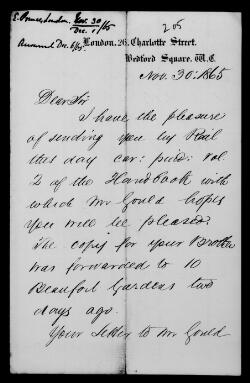 E. Prince London. Nov. 30/65
Dec. 1/65
Answered Dec. 6/65.
205
London, 26, Charlotte Street,
Bedford Square, W.C.
Nov. 30: 1865
Dear Sir
I have the pleasure
of sending you by Rail
this day car: paid: vol
2 of the Handbook with
which Mr Gould hopes
you will be pleased:
The copy for your Brother
was forwarded to 10
Beaufort Gardens two
days ago.
Your letter to Mr Gould